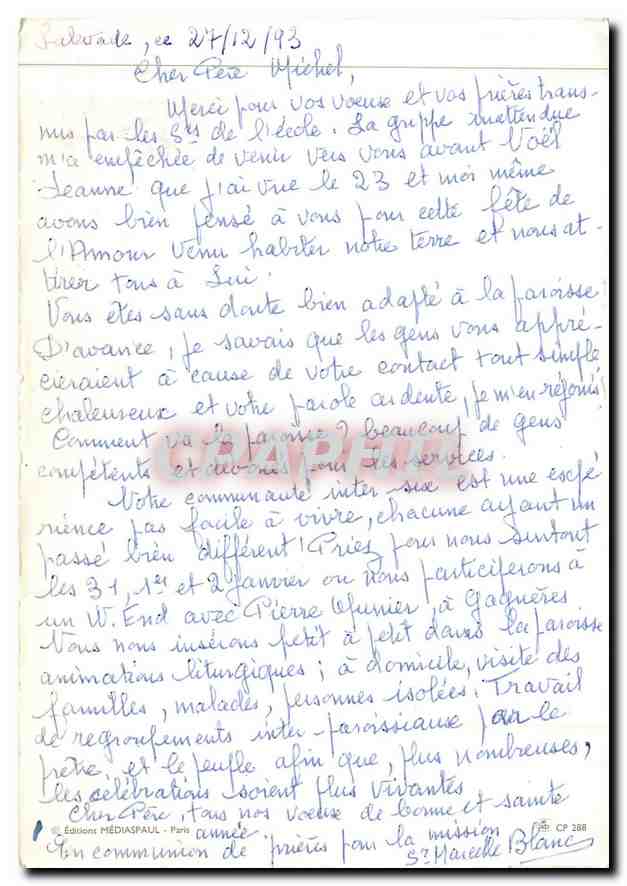 , ce 27/12/93
Cher Père Michel,
Merci pour vos voeux et vos prières trans-
mis par les Srs de l'école. La grippe inattendue
m'a empêchée de venir vers vous avant Noël
Jeanne que j'ai vue le 23 et moi même
avons bien pensé à vous pour cette fête de
l'Amour venu habiter notre terre et nous at-
tirer tous à Lui.
Vous êtes sans doute bien adapté à la paroisse
D'avance, je savais que les gens vous appré-
cieraient à cause de votre contact tout simple
chaleureux et votre parole ardente, je m'en réjouis!
Comment va la paroisse? beaucoup de gens
compétents et dévoués pour les services.
CPARAMA
Notre communauté inter- est une expé
rience pas facile à vivre, chacune ayant un
passé bien différent! Priez pour nous surtout
les 31, 1er et 2 janvier où nous participerons à
un W. End avec Pierre à Gagnères
Nous nous insérons petit à petit dans la paroisse
animations liturgiques; à domicile, visite des
familles, malades, personnes isolées. Travail
de regroupements inter-paroissiaux par le
prêtre et le peuple afin que, plus nombreuses,
les célébrations soient plus vivantes
Cher Père, tous nos voeux de bonne et sainte
année
© Editions MÉDIASPAUL - Paris CP 288
En communion de prières pour la mission
Sr Marcelle Blanc